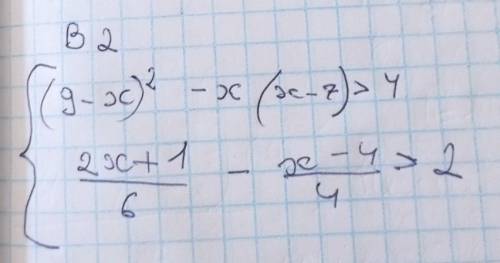 В 2
(9-x)² - x(x-7)>4
2x+1/6 - x-4/4 > 2